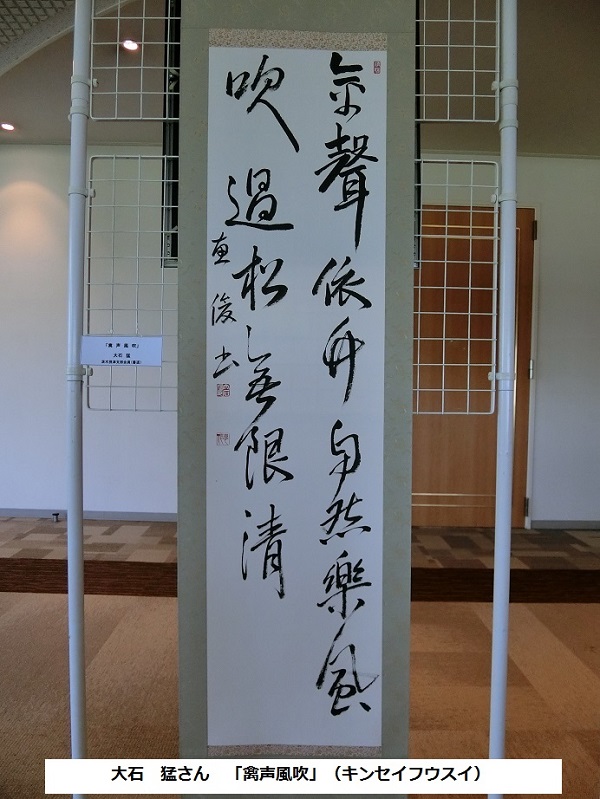 禽聲依竹自然樂風
吹過松無限清
俊書
「禽声風吹」
大石 猛
大石 猛さん 「禽声風吹」（キンセイフウスイ）